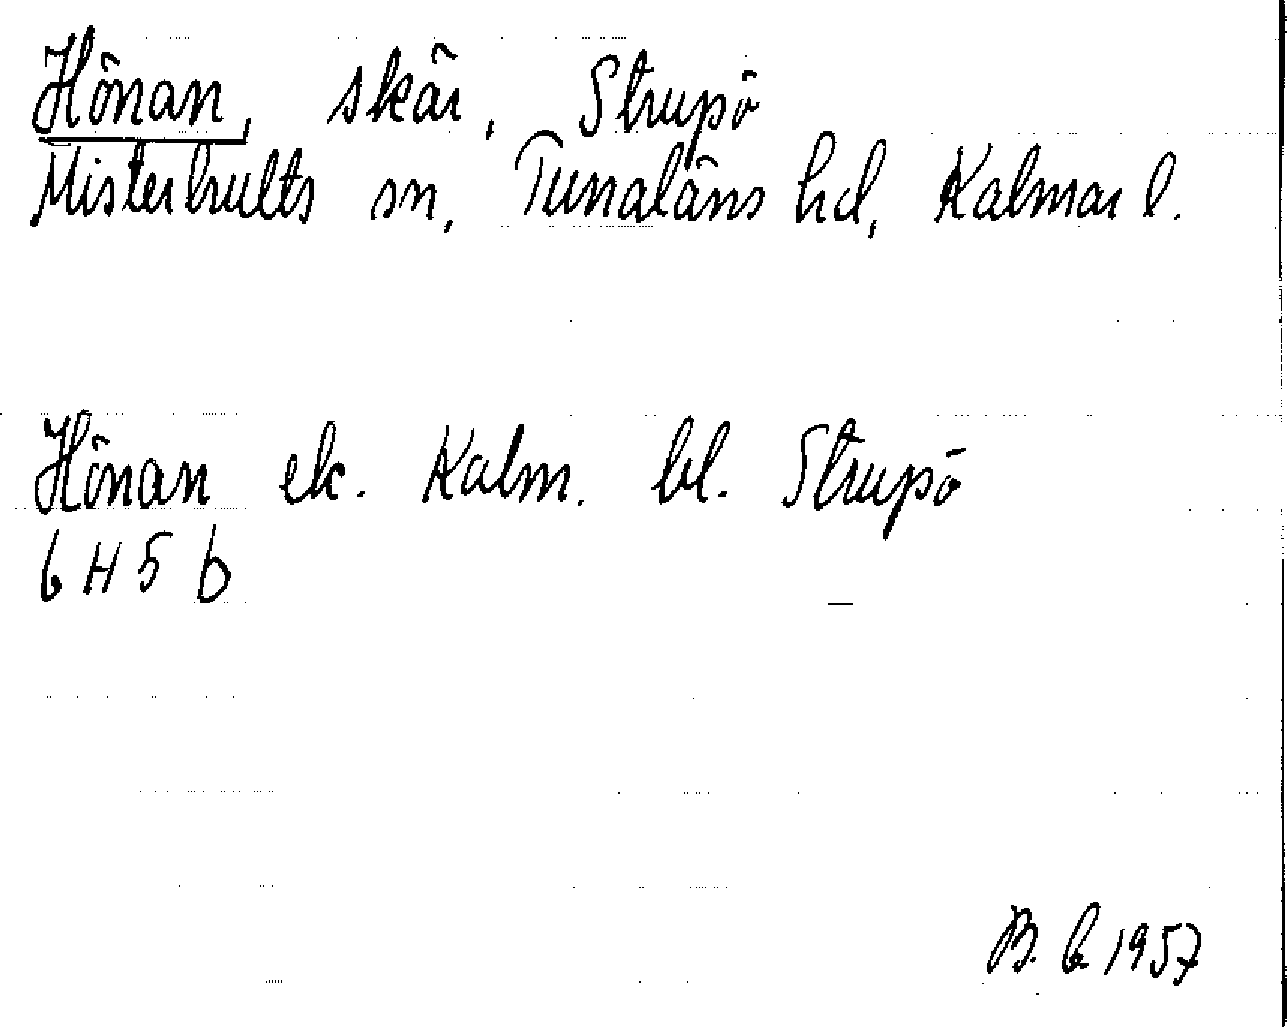 Hönan, skär, Strupö
Misterhults sn, Tunaläns hd, Kalmar l.
Hönan ek. Kalm. bl. Strupö
6 H 5 b
B. G. 1957